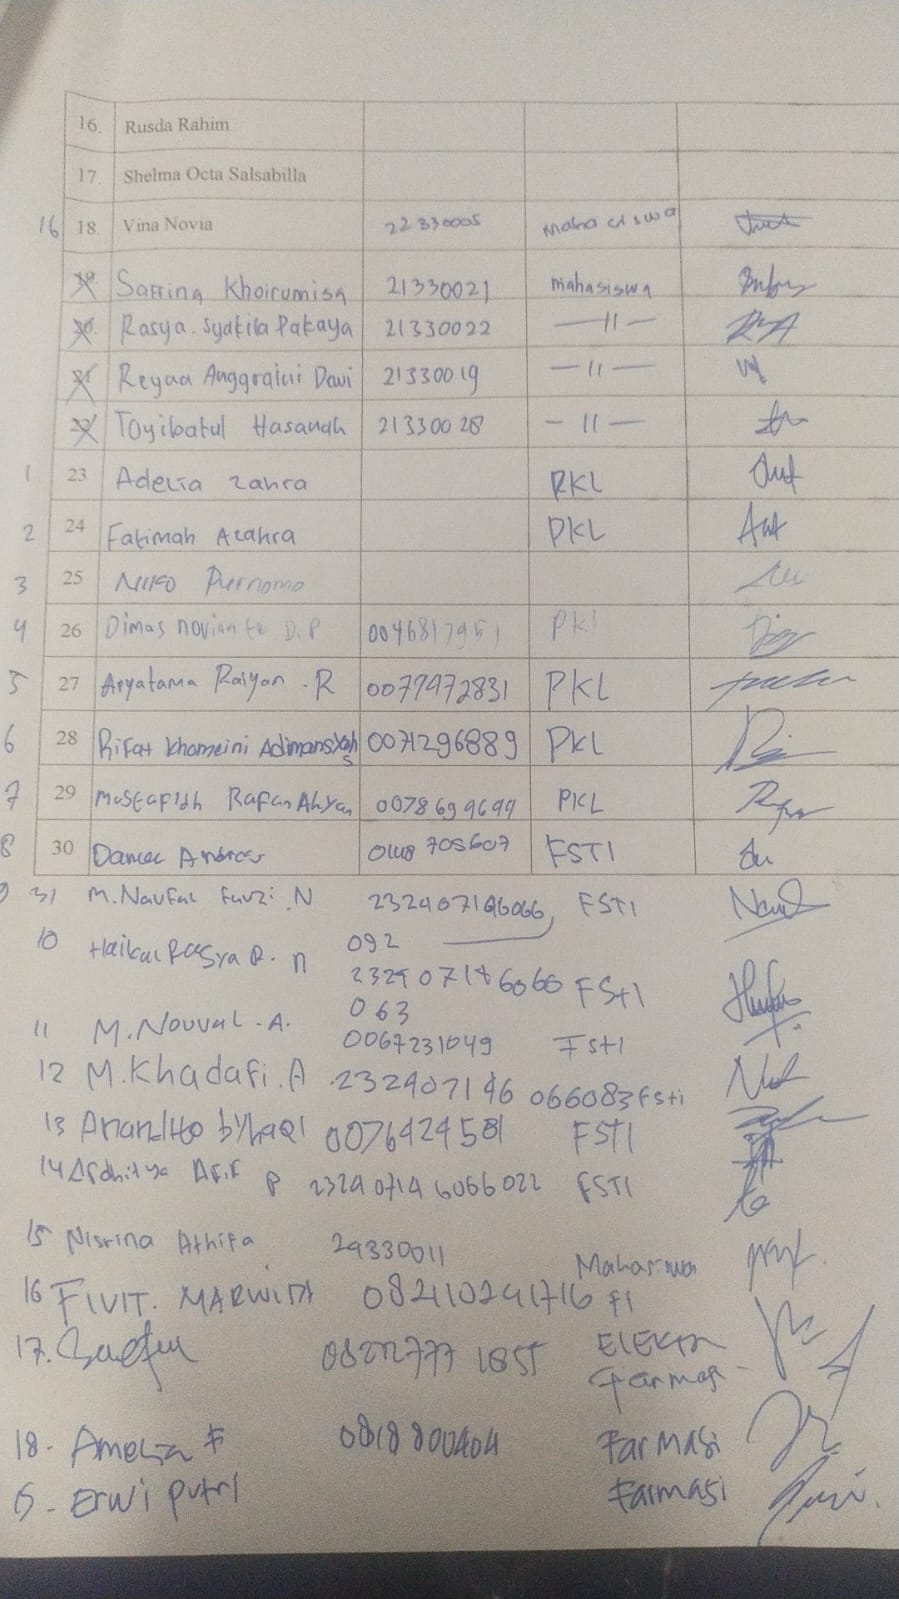 16. Rusda Rahim
17. Shelma Octa Salsabilla
16 18. Vina Novia 22330005 Mahasiswa
Safrina Khoirunisa 21330021 mahasiswa
Rasya. Syakila Pakaya 21330022 —11—
Reyaa Anggraini Dewi 21330019 —11—
Toyibatul Hasanah 21330028 —11—
1 23 Adelia Zahra PKL
2 24 Fatimah Azahra PKL
3 25 Purnomo
4 26 Dimas novianto D.P 0046817951 PKL
5 27 Aryatama Raiyan .R 0077972831 PKL
6 28 Rifat Khameini Adimansyah 0071296889 PKL
7 29 Rafan Ahyan 0078699699 PKL
8 30 FSTI
31 M.Naufal Fauzi .N FSTI
092
10 Haikal Rasya R. n FStI
063
11 M.Nouval.A. 0067231049 FstI
12 M.Khadafi.A 232407146 066083 Fsti
13 0076424581 FSTI
14 Arif P 232407146066022 FSTI
15 Nisrina Athifa 24330011 Mahasiswa
16 FIVIT. MARWITA 082110241716 FI
17. ELEKTR
Farmasi
18- Amelia F 0818800404 Farmasi
Erwi putri Farmasi